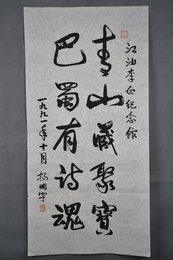 江油李白纪念馆
青山藏聚宝
巴蜀有诗魂
一九九一年十月